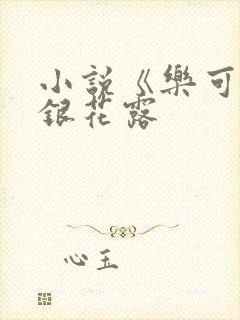 小說《樂可
銀花露
心玉